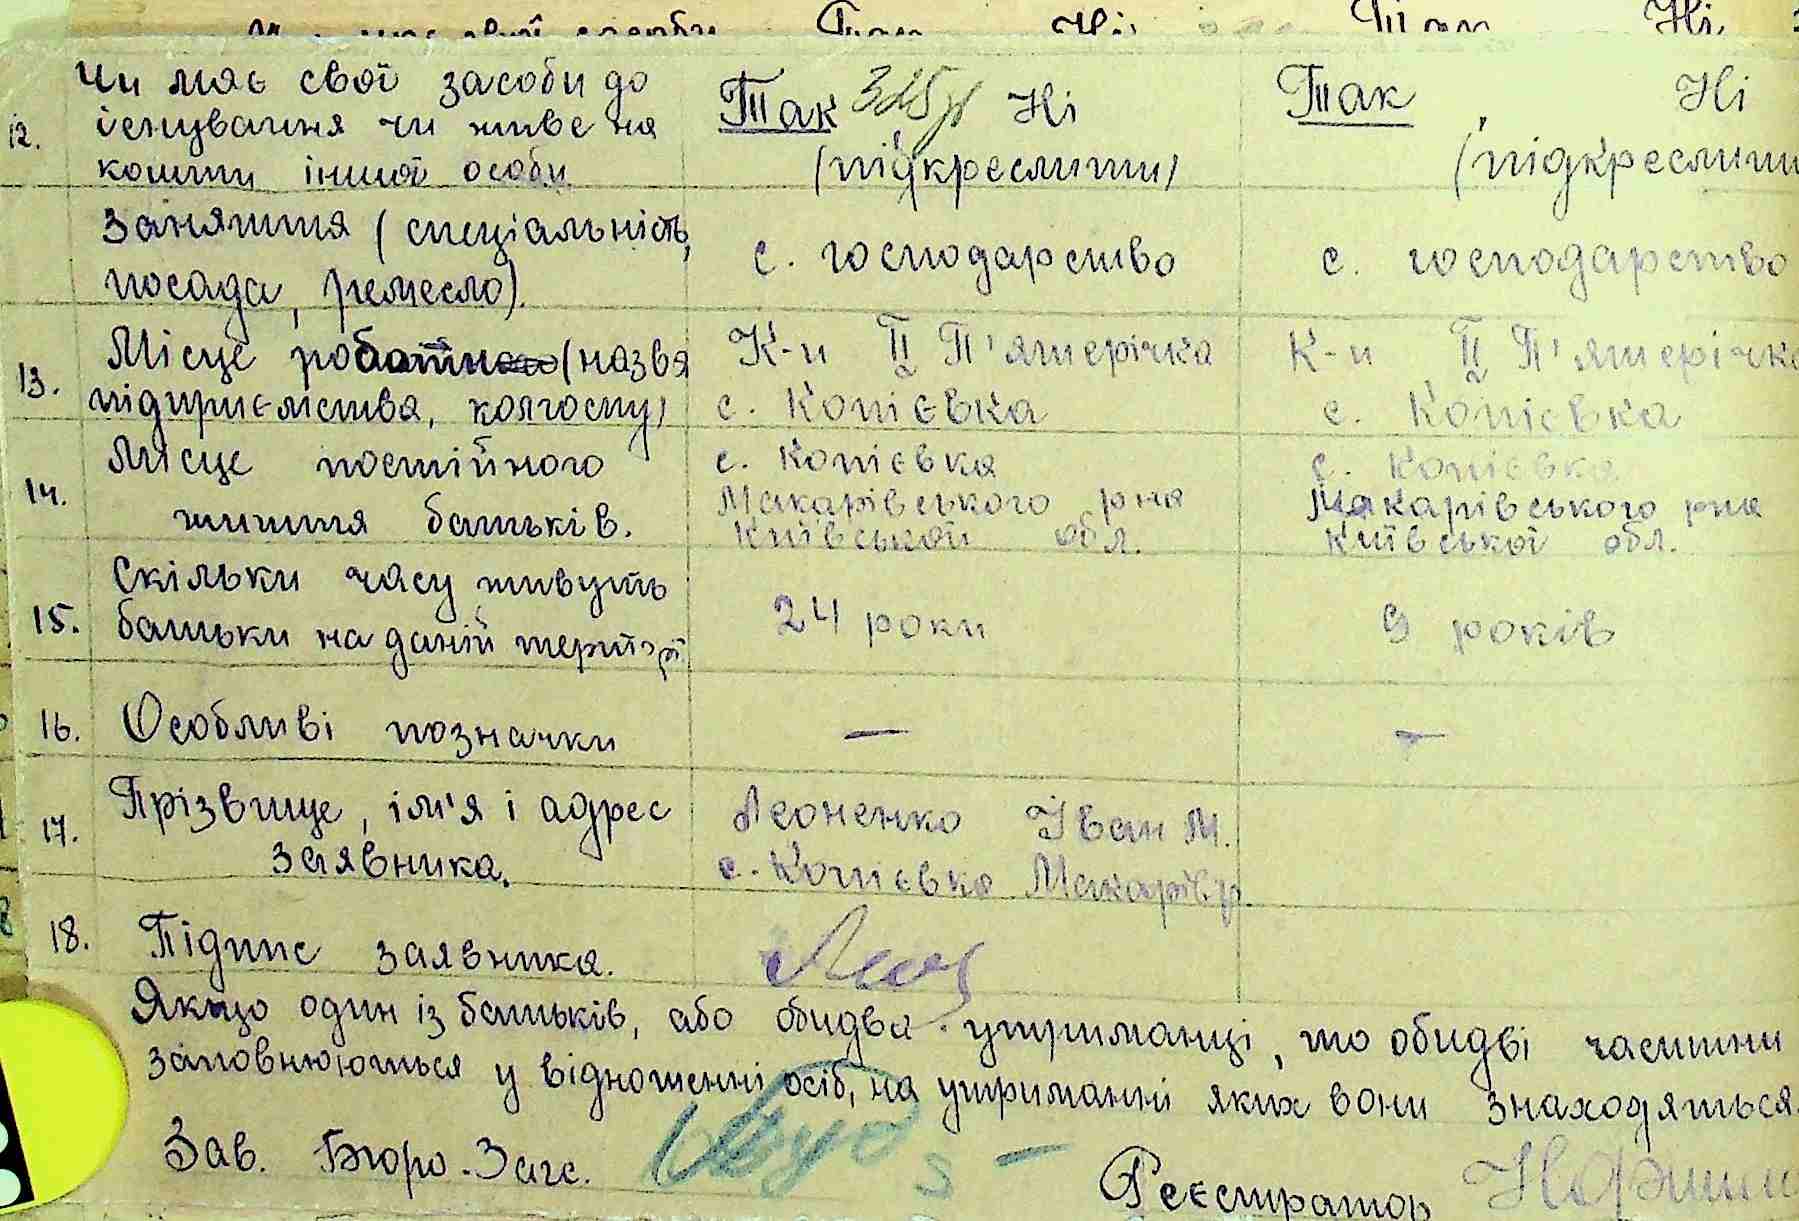 Чи має свої засоби Так Ні Так Ні
12. Чи має свої засоби до існування чи живе на кошти іншої особи. Так Ні (підкреслити) Так, Ні (підкреслити
Заняття (спеціальність, посада, ремесло). с. господарство с. господарство
13. Місце роботи (назва підприємства, колгоспу) К-п ІІ П'ятирічка с. Копієвка К-п ІІ П'ятирічка с. Копієвка
14. Місце постійного життя батьків. с. Копієвка Макарівського р-на Київської обл. с. Копієвка Макарівського р-на Київської обл.
15. Скільки часу живуть батьки на даній територї 24 роки 9 років
16. Особливі позначки — —
17. Прізвище, ім'я і адрес заявника. Леоненко Іван М. с. Копієвка Макарів.р.
18. Підпис заявника.
Якщо один із батьків, або обидва утриманці, то обидві частини
заповнюються у відношенні осіб, на утриманні яких вони знаходяться.
Зав. Бюро-Загс. Реєстратор